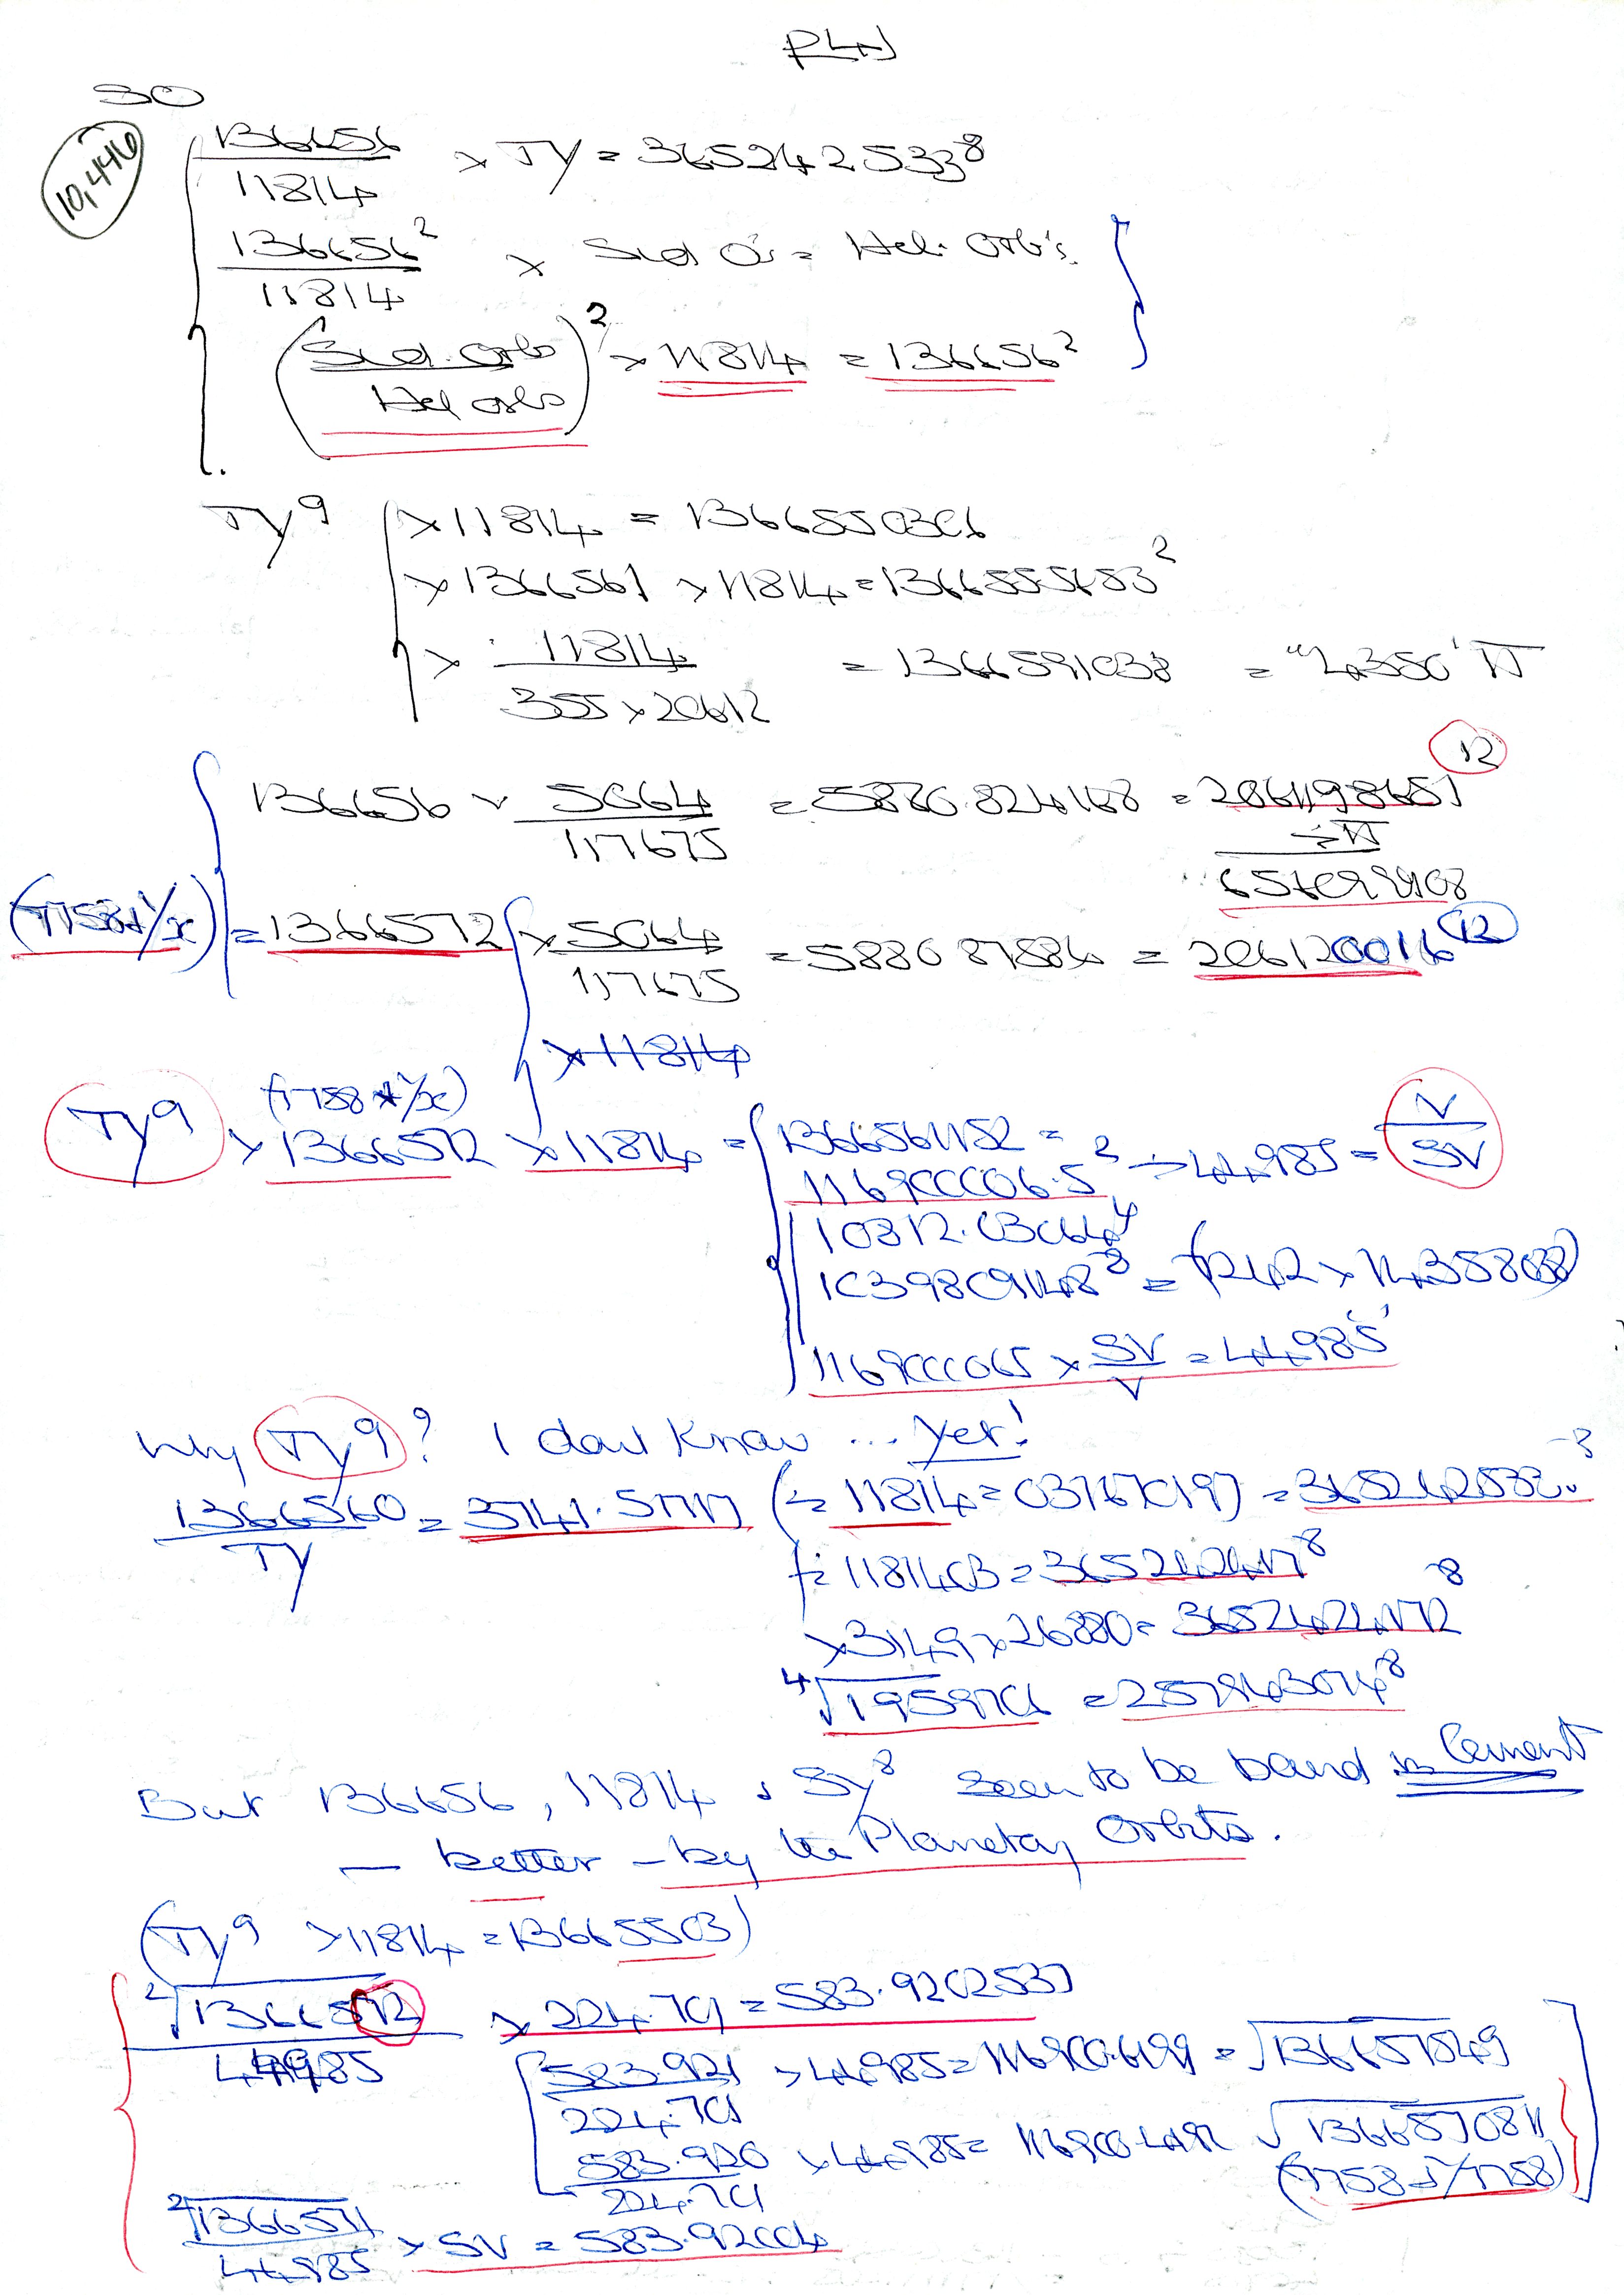 PLN
SO
10,446
136656 / 11814 × TY = 3652425338
136656² / 11814 × Sid O's = Hel. Orb's.
(Sid. Orbs / Hel orbs)² × 11814 = 136656²
TY⁹ × 11814 = 1366550306
× 1366561 × 11814 = 1366555653²
× 11814 / 355 × 20612 = 1366591038 = "4350' π
136656 × 5064 / 117675 = 5880.824168 = 2061198657 12
÷ π
(1758+1/x) = 1366572 × 5064 / 117675 = 588087884 = 206120016 12
× 11814
TY⁹ × (1758+1/x) 1366572 × 11814 = 1366561152 =
1169000006.5² ÷ 44985 = V / SV
10812.03064⁴
10398091488 = (1242 × 14358038)
1169000065 × SV / V = 44985'
Why TY⁹? I dont know ... Yet!
1366560 / TY = 3741.5171 (÷ 11814 = 031670197) = 3652425338
÷ 1181403 = 3652424178
× 3149 × 26880 = 36524241172
⁴√1959701 = 25794307148
But 136656, 11814 & SY⁸ seem to be bound in Cement
— better — by the Planetary Orbits.
(TY⁹ × 11814 = 13665503)
²√1366572 / 44985 × 224.701 = 583.9202537
583.921 / 224.701 × 44985 = 116900.6199 = √1366571549
583.920 / 224.701 × 44985 = 116900.4192 √1366570811
(1758+1/1758)
²√1366571 / 44985 × SV = 583.92004